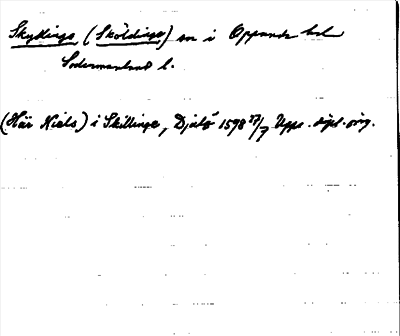 Skyllinge (Sköldinge) sn i Oppunda hd
Södermanland l.
(Här Niels) i Skillinge, Djulö 1598 27/7 Upps. dipl. orig.